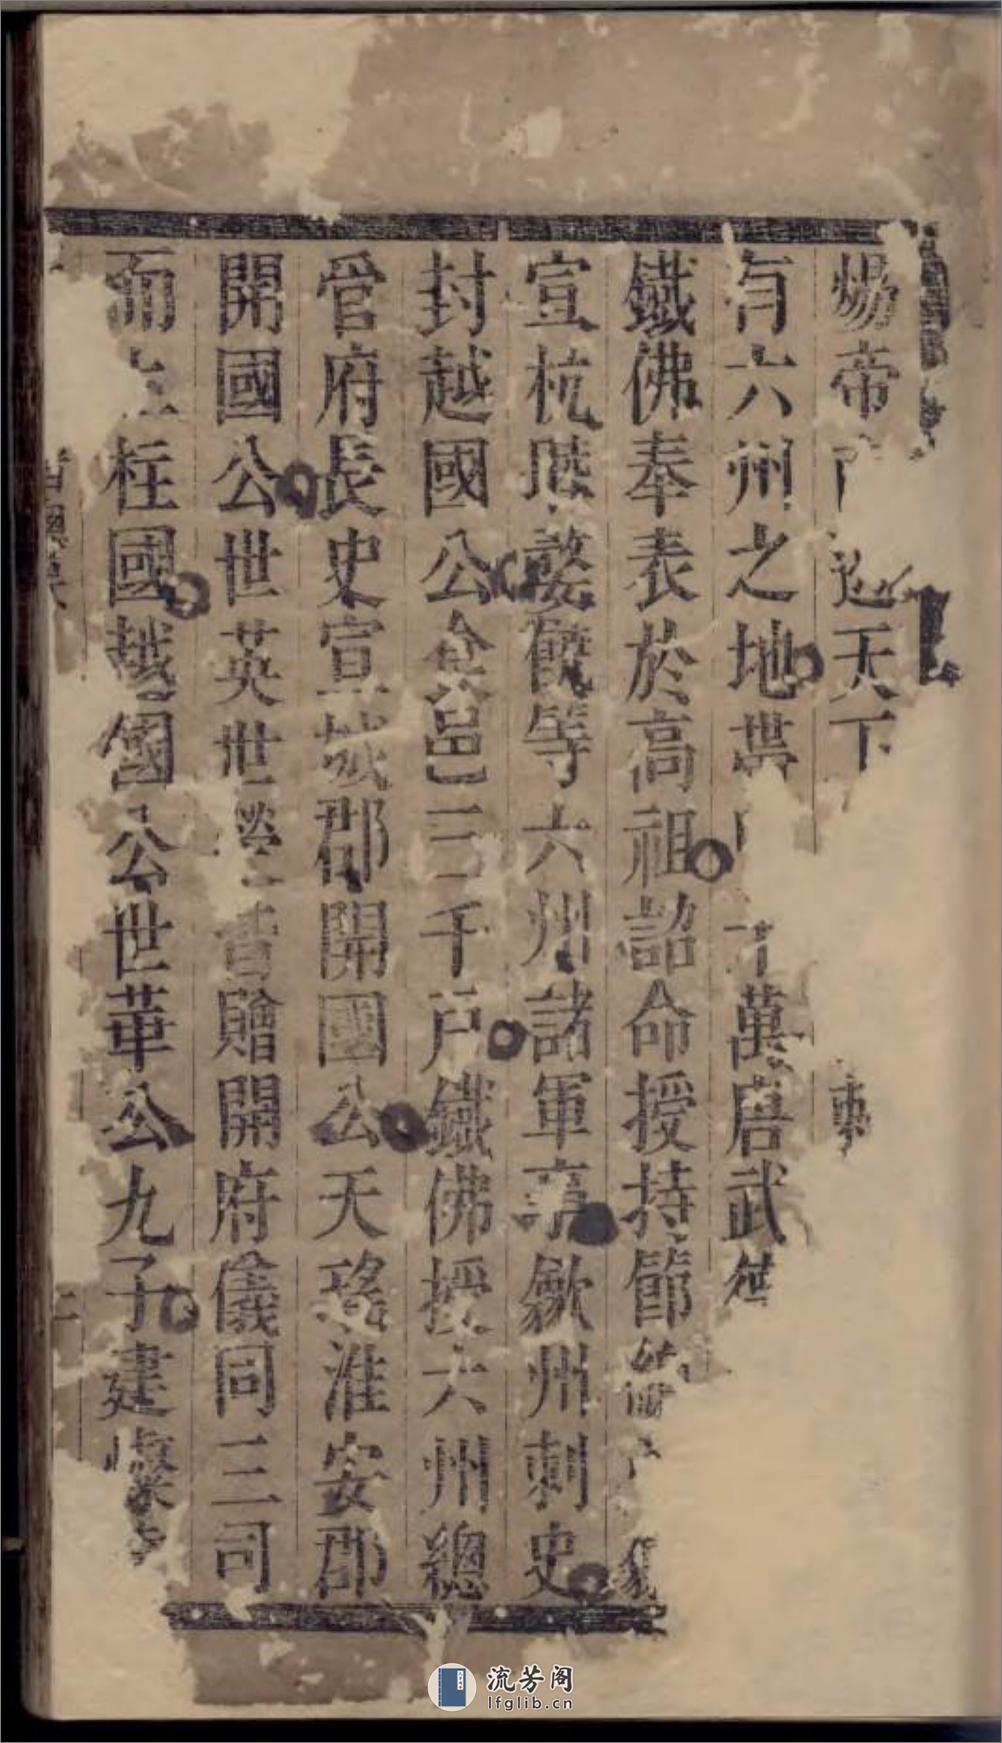 煬帝天下事
有六州之地萬唐武
鐵佛奉表於高祖詔命授持節
宣杭睦婺饒等六州諸軍事歙州刺史
封越國公食邑三千戶鐵佛授六州總
管府長史宣城郡開國公天瑤淮安郡
開國公世英世榮皆贈開府儀同三司
而上柱國越國公世華公九子建
流芳阁
lfglib.cn